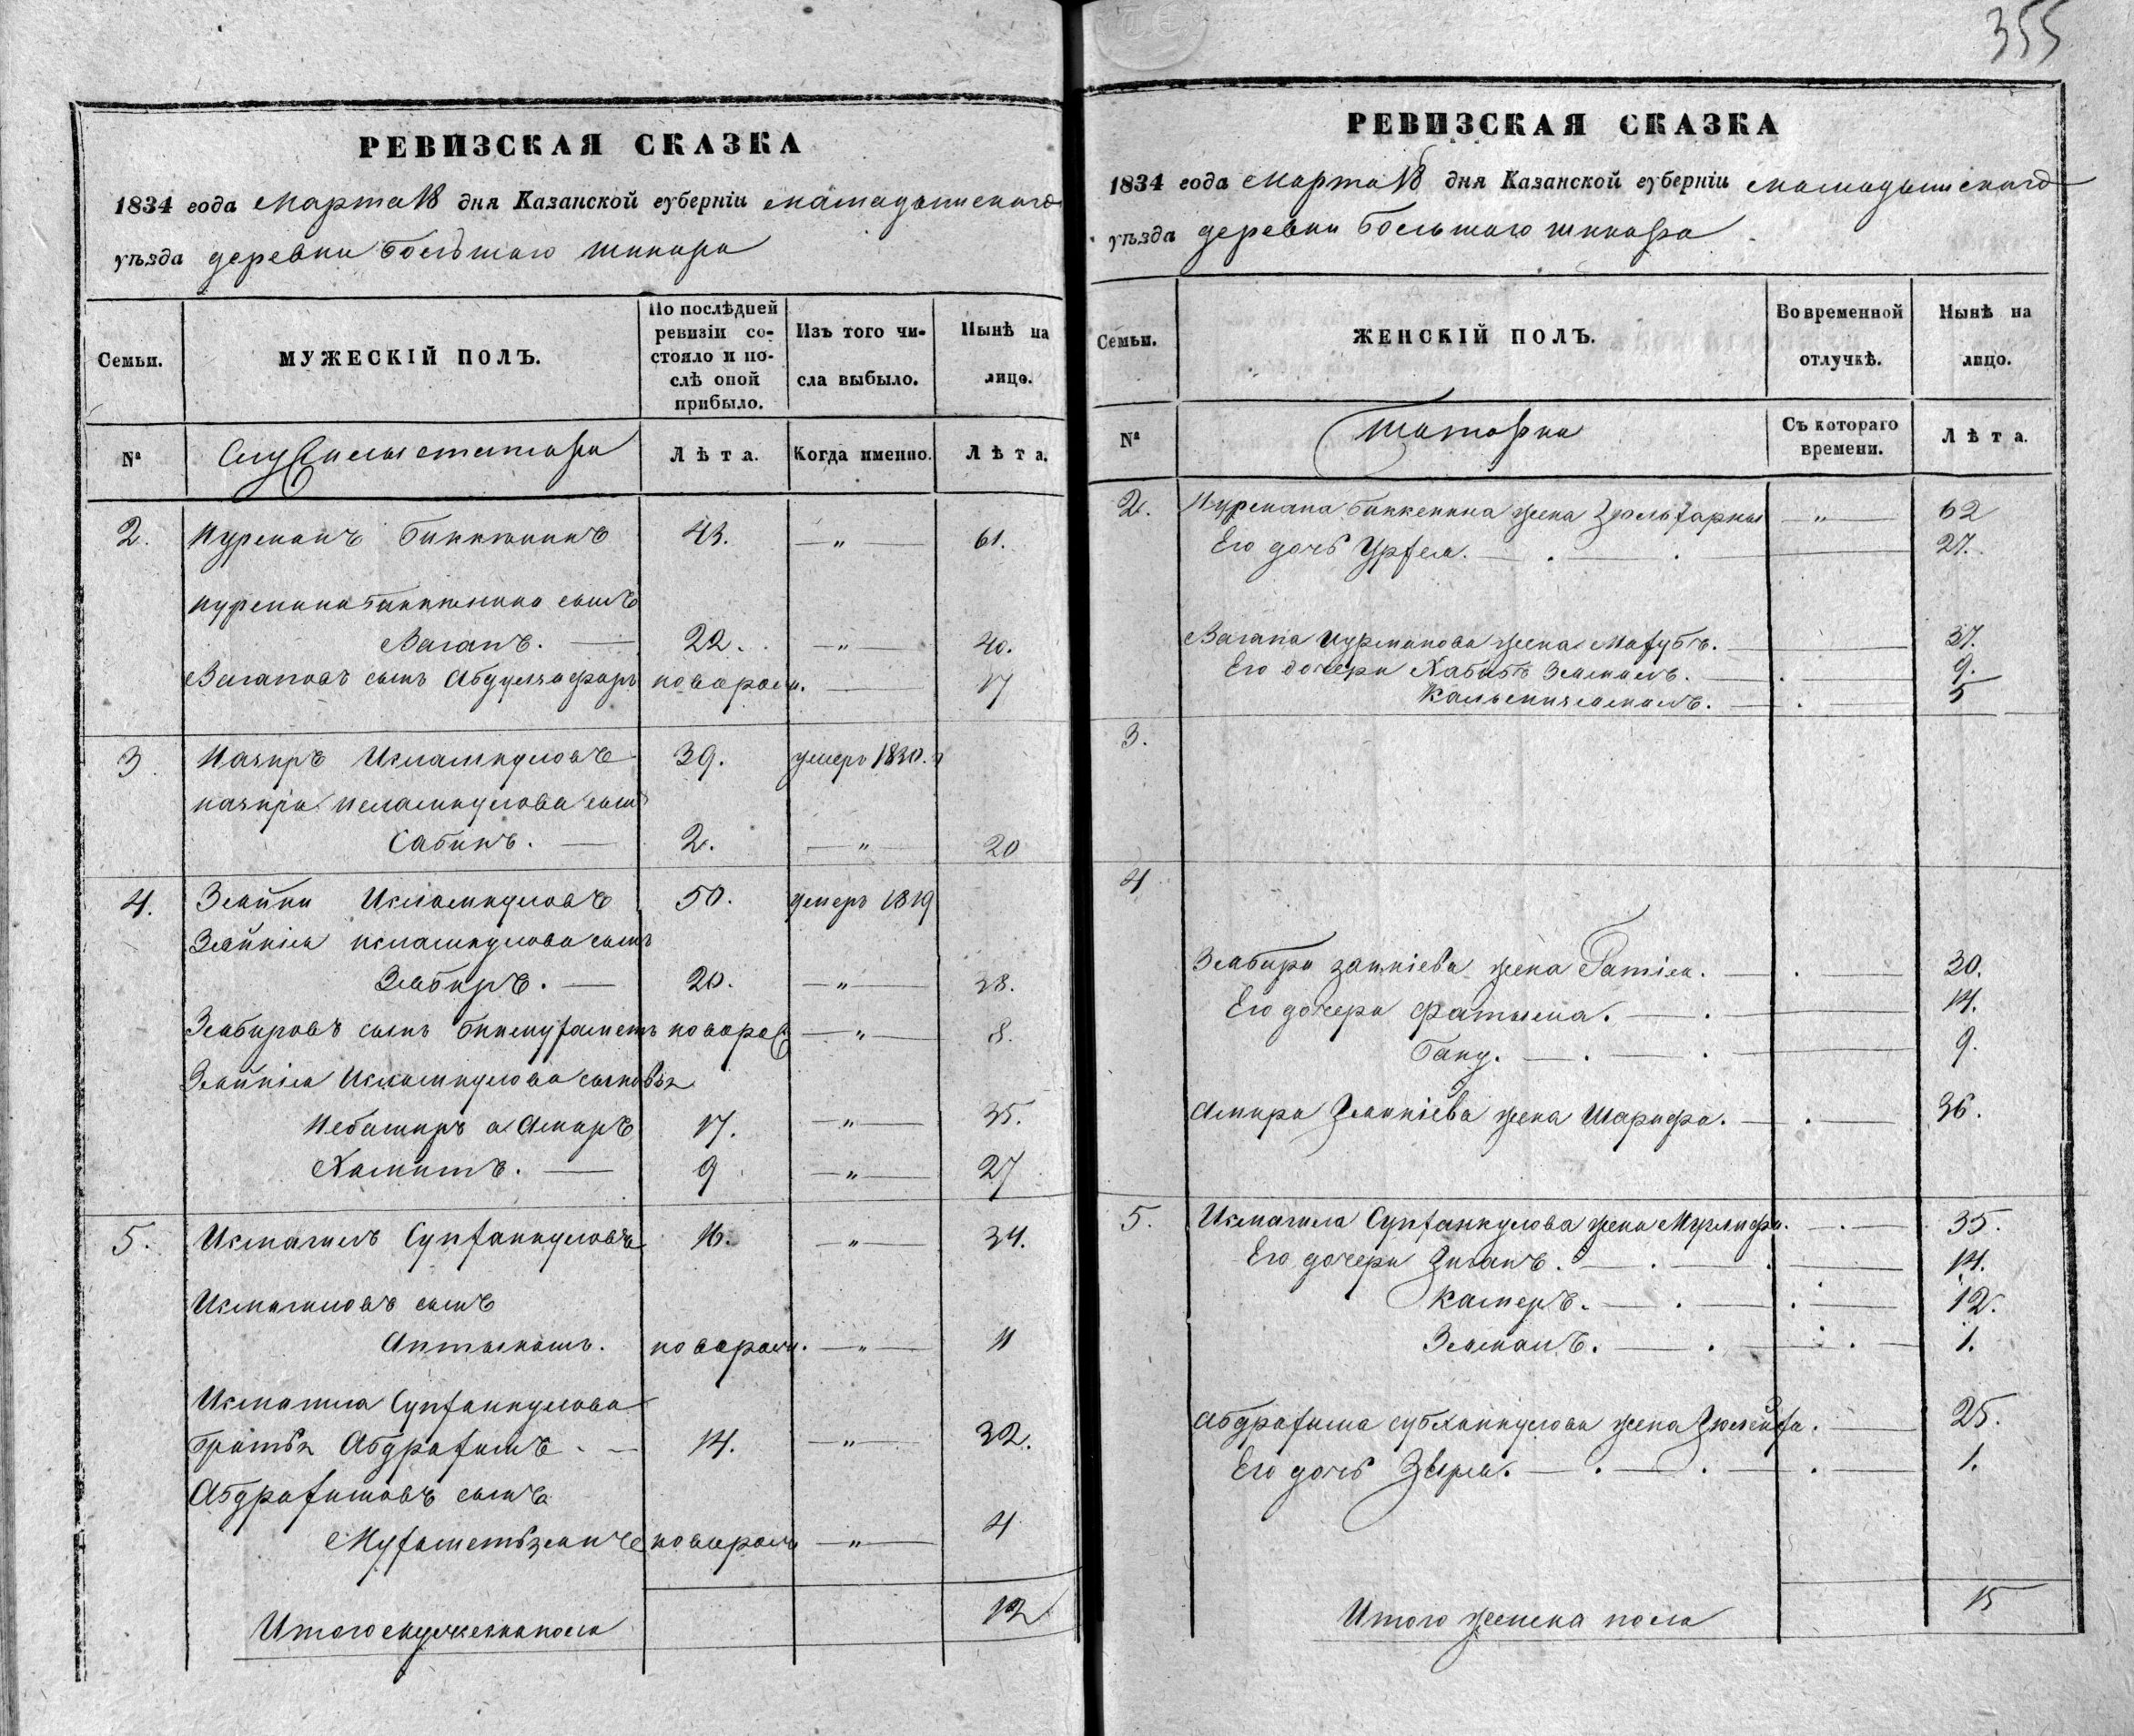 355
РЕВИЗСКАЯ СКАЗКА
1834 года Марта 18 дня Казанской губерніи мамадышскаго
уѣзда деревни большаго шинара
Семьи.
МУЖЕСКІЙ ПОЛЪ.
По послѣдней ревизіи состояло и послѣ оной прибыло.
Изъ того числа выбыло.
Нынѣ на лицо.
№
Служилыя татары
Лѣта.
Когда именно.
Лѣта.
2. Нурманъ Биккининъ 43. — „ — 61.
нурмана биккинина сынъ
Вагапъ. — 22. — „ — 40.
Вагаповъ сынъ Абдулгафаръ новорож. — 17
3 Назиръ Исламкуловъ 39. умеръ 1830. г
назира исламкулова сынъ
Сабикъ. — 2. — „ — 20
4. Зайни Исламкуловъ 50. умеръ 1819
Зайнія исламкулова сынъ
Забиръ. — 20. — „ — 38.
Забировъ сынъ бикмухаметъ новорож — „ — 8.
Зайнія Исламкулова сыновья
Небамиръ а Амиръ 17. — „ — 35.
Хамитъ. — 9 — „ — 27
5. Исмагилъ Супханкуловъ 16. — „ — 34.
Исмагиловъ сынъ
Аптыкашъ. новорож. — „ — 11
Исмагила Супханкулова
братья Абдрахимъ - — 14. — „ — 32.
Абдрахимовъ сынъ
Мухаметьзянъ новорож — „ — 4
Итого мужескаго пола 12
РЕВИЗСКАЯ СКАЗКА
1834 года Марта 18 дня Казанской губерніи мамадышскаго
уѣзда деревни большаго шинара
Семьи.
ЖЕНСКІЙ ПОЛЪ.
Во временной отлучкѣ.
Нынѣ на лицо.
№
татарки
Съ котораго времени.
Лѣта.
2. Нурмана биккинина жена — „ — 62
Его дочь — 27.
Вагапа Нурманова жена Махубъ. — 37.
Его дочери Хабибъ Замалъ. — 9.
— 5
3.
4
Забира заиніева жена — 30.
Его дочери Фатыма. — 14.
Бану. — 9.
Амира Заиніева жена Шарифа. — 36.
5. Исмагила Супханкулова жена Муглифа. — 35.
Его дочери — 14.
Камеръ. — 12.
Заманъ. — 1.
Абдрахима субханкулова жена Зюлейха. — 25.
Его дочь — 1.
Итого женска пола 15